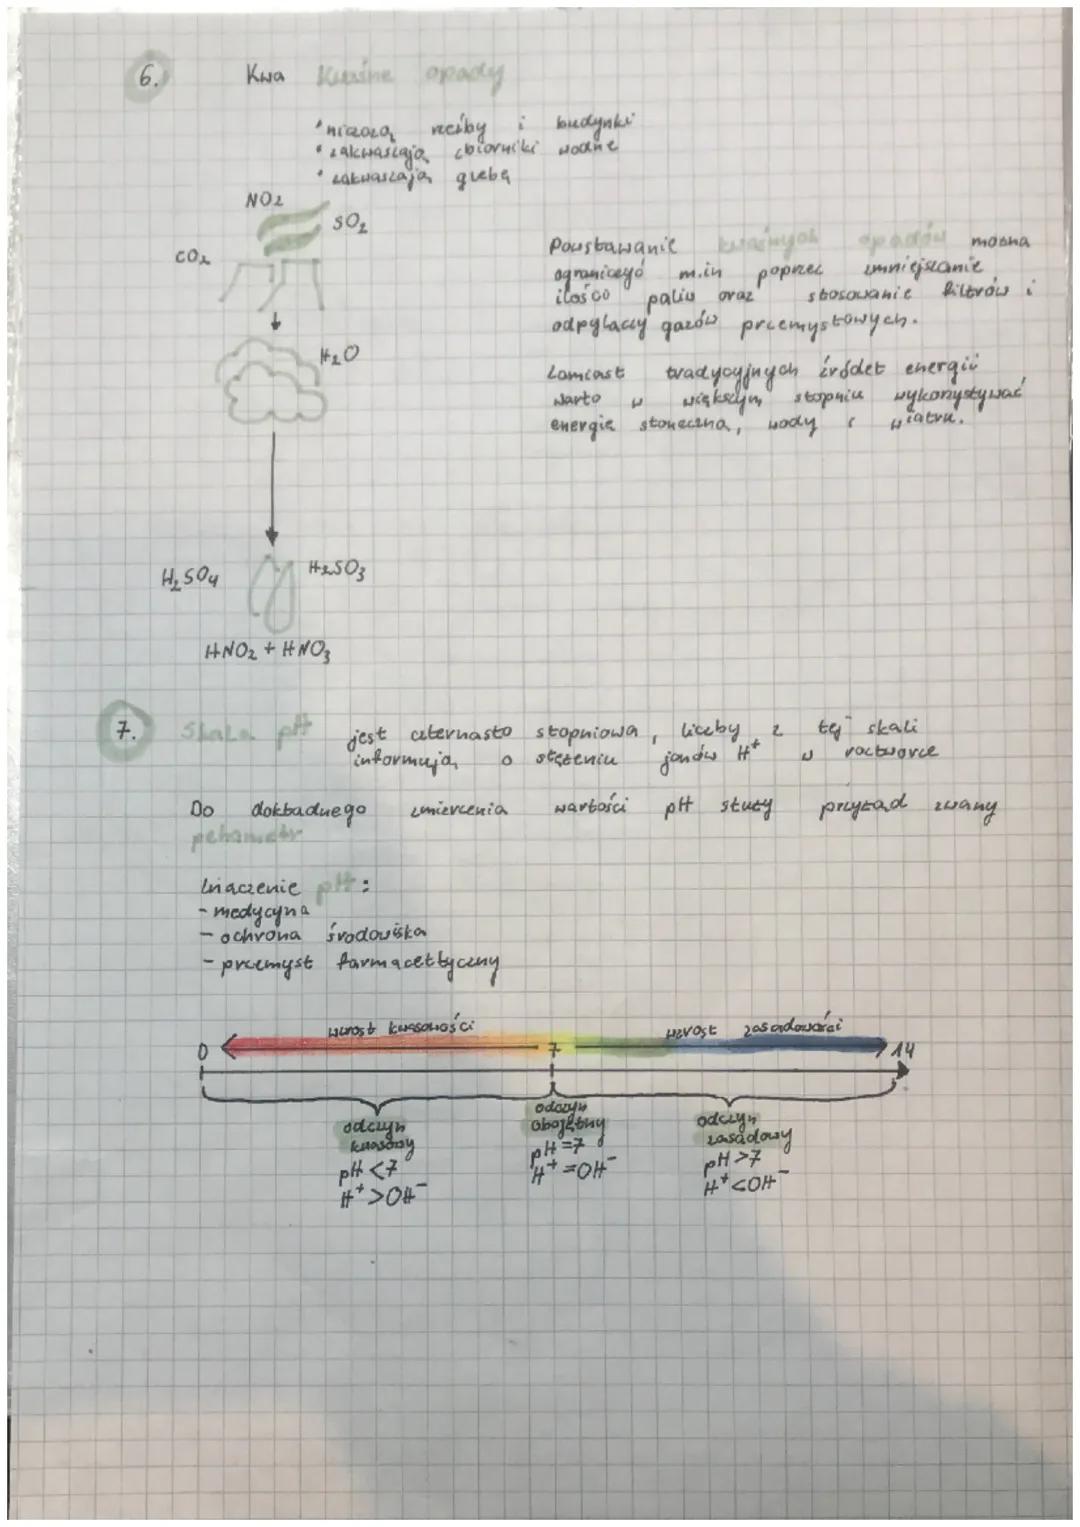 6. Kwa Kwaśne opady
• niszczą rzeźby i budynki
• zakwaszają zbiorniki wodne
• zakwaszają glebę
NO2
SO2
CO2
H2O
H2SO4
H2SO3
HNO2 + HNO3
Powstawanie kwaśnych opadów można
ograniczyć m.in poprzez zmniejszanie
ilości paliw oraz stosowanie filtrów i
odpylaczy gazów przemysłowych.
Zamiast tradycyjnych źródeł energii
warto w większym stopniu wykorzystywać
energię słoneczną, wody i wiatru.
7. Skala pH jest czternasto stopniowa, liczby z tej skali
informują o stężeniu jonów H+ w roztworze
Do dokładnego zmierzenia wartości pH służy przyrząd zwany
pehametr
Znaczenie pH:
- medycyna
- ochrona środowiska
- przemysł farmacettyczny
wzrost kwasowości
wzrost zasadowości
0 7 14
odczyn
kwasowy
pH <7
H+ >OH-
odczyn
obojętny
pH =7
H+ =OH-
odczyn
zasadowy
pH >7
H+ <OH-